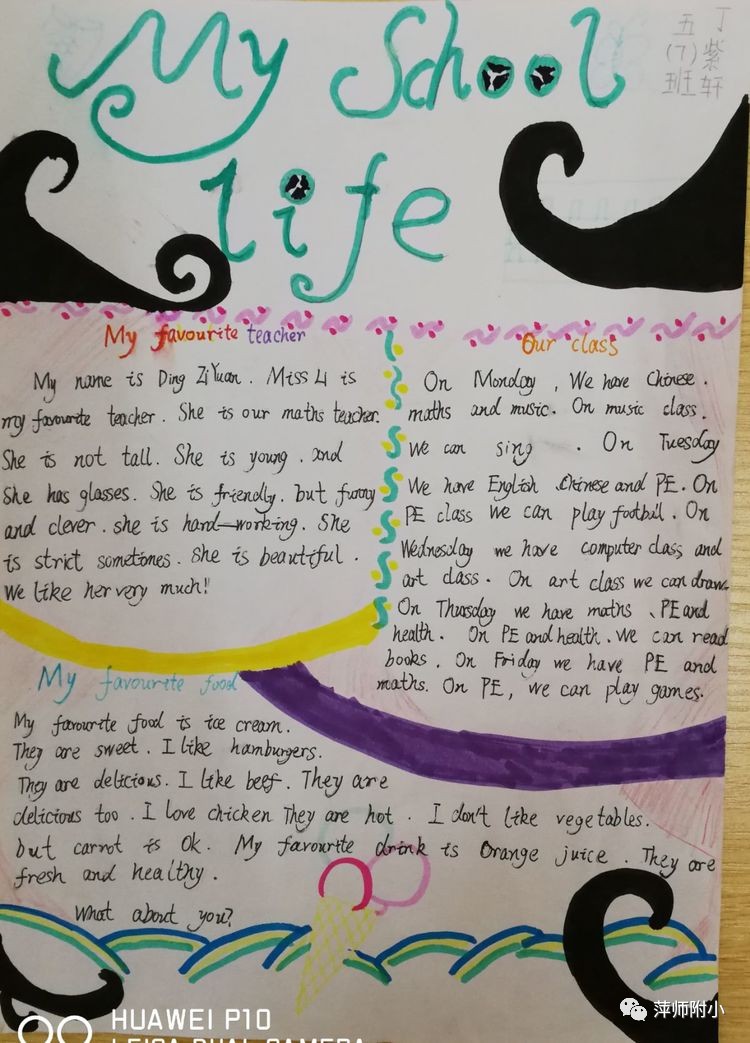 My School
life
丁紫轩
五(7)班
My favourite teacher
My name is Ding ZiYuan. Miss Li is
my favourite teacher. She is our maths teacher.
She is not tall. She is young. and
She has glasses. She is friendly. but funny
and clever. she is hard-working. She
is strict sometimes. She is beautiful.
We like her very much!
Our class
On Monday, We have Chinese.
maths and music. On music class.
We can sing. On Tuesday
We have English、Chinese and PE. On
PE class we can play football. On
Wednesday we have computer class and
art class. On art class we can draw.
On Thursday we have maths、PE and
health. On PE and health. we can read
books. On Friday we have PE and
maths. On PE, we can play games.
My favourite food
My favourite food is ice cream.
They are sweet. I like hamburgers.
They are delicious. I like beef. They are
delicious too. I love chicken They are hot. I don't like vegetables.
but carrot is Ok. My favourite drink is Orange juice. They are
fresh and healthy.
What about you?
萍师附小
HUAWEI P10
LEICA DUAL CAMERA